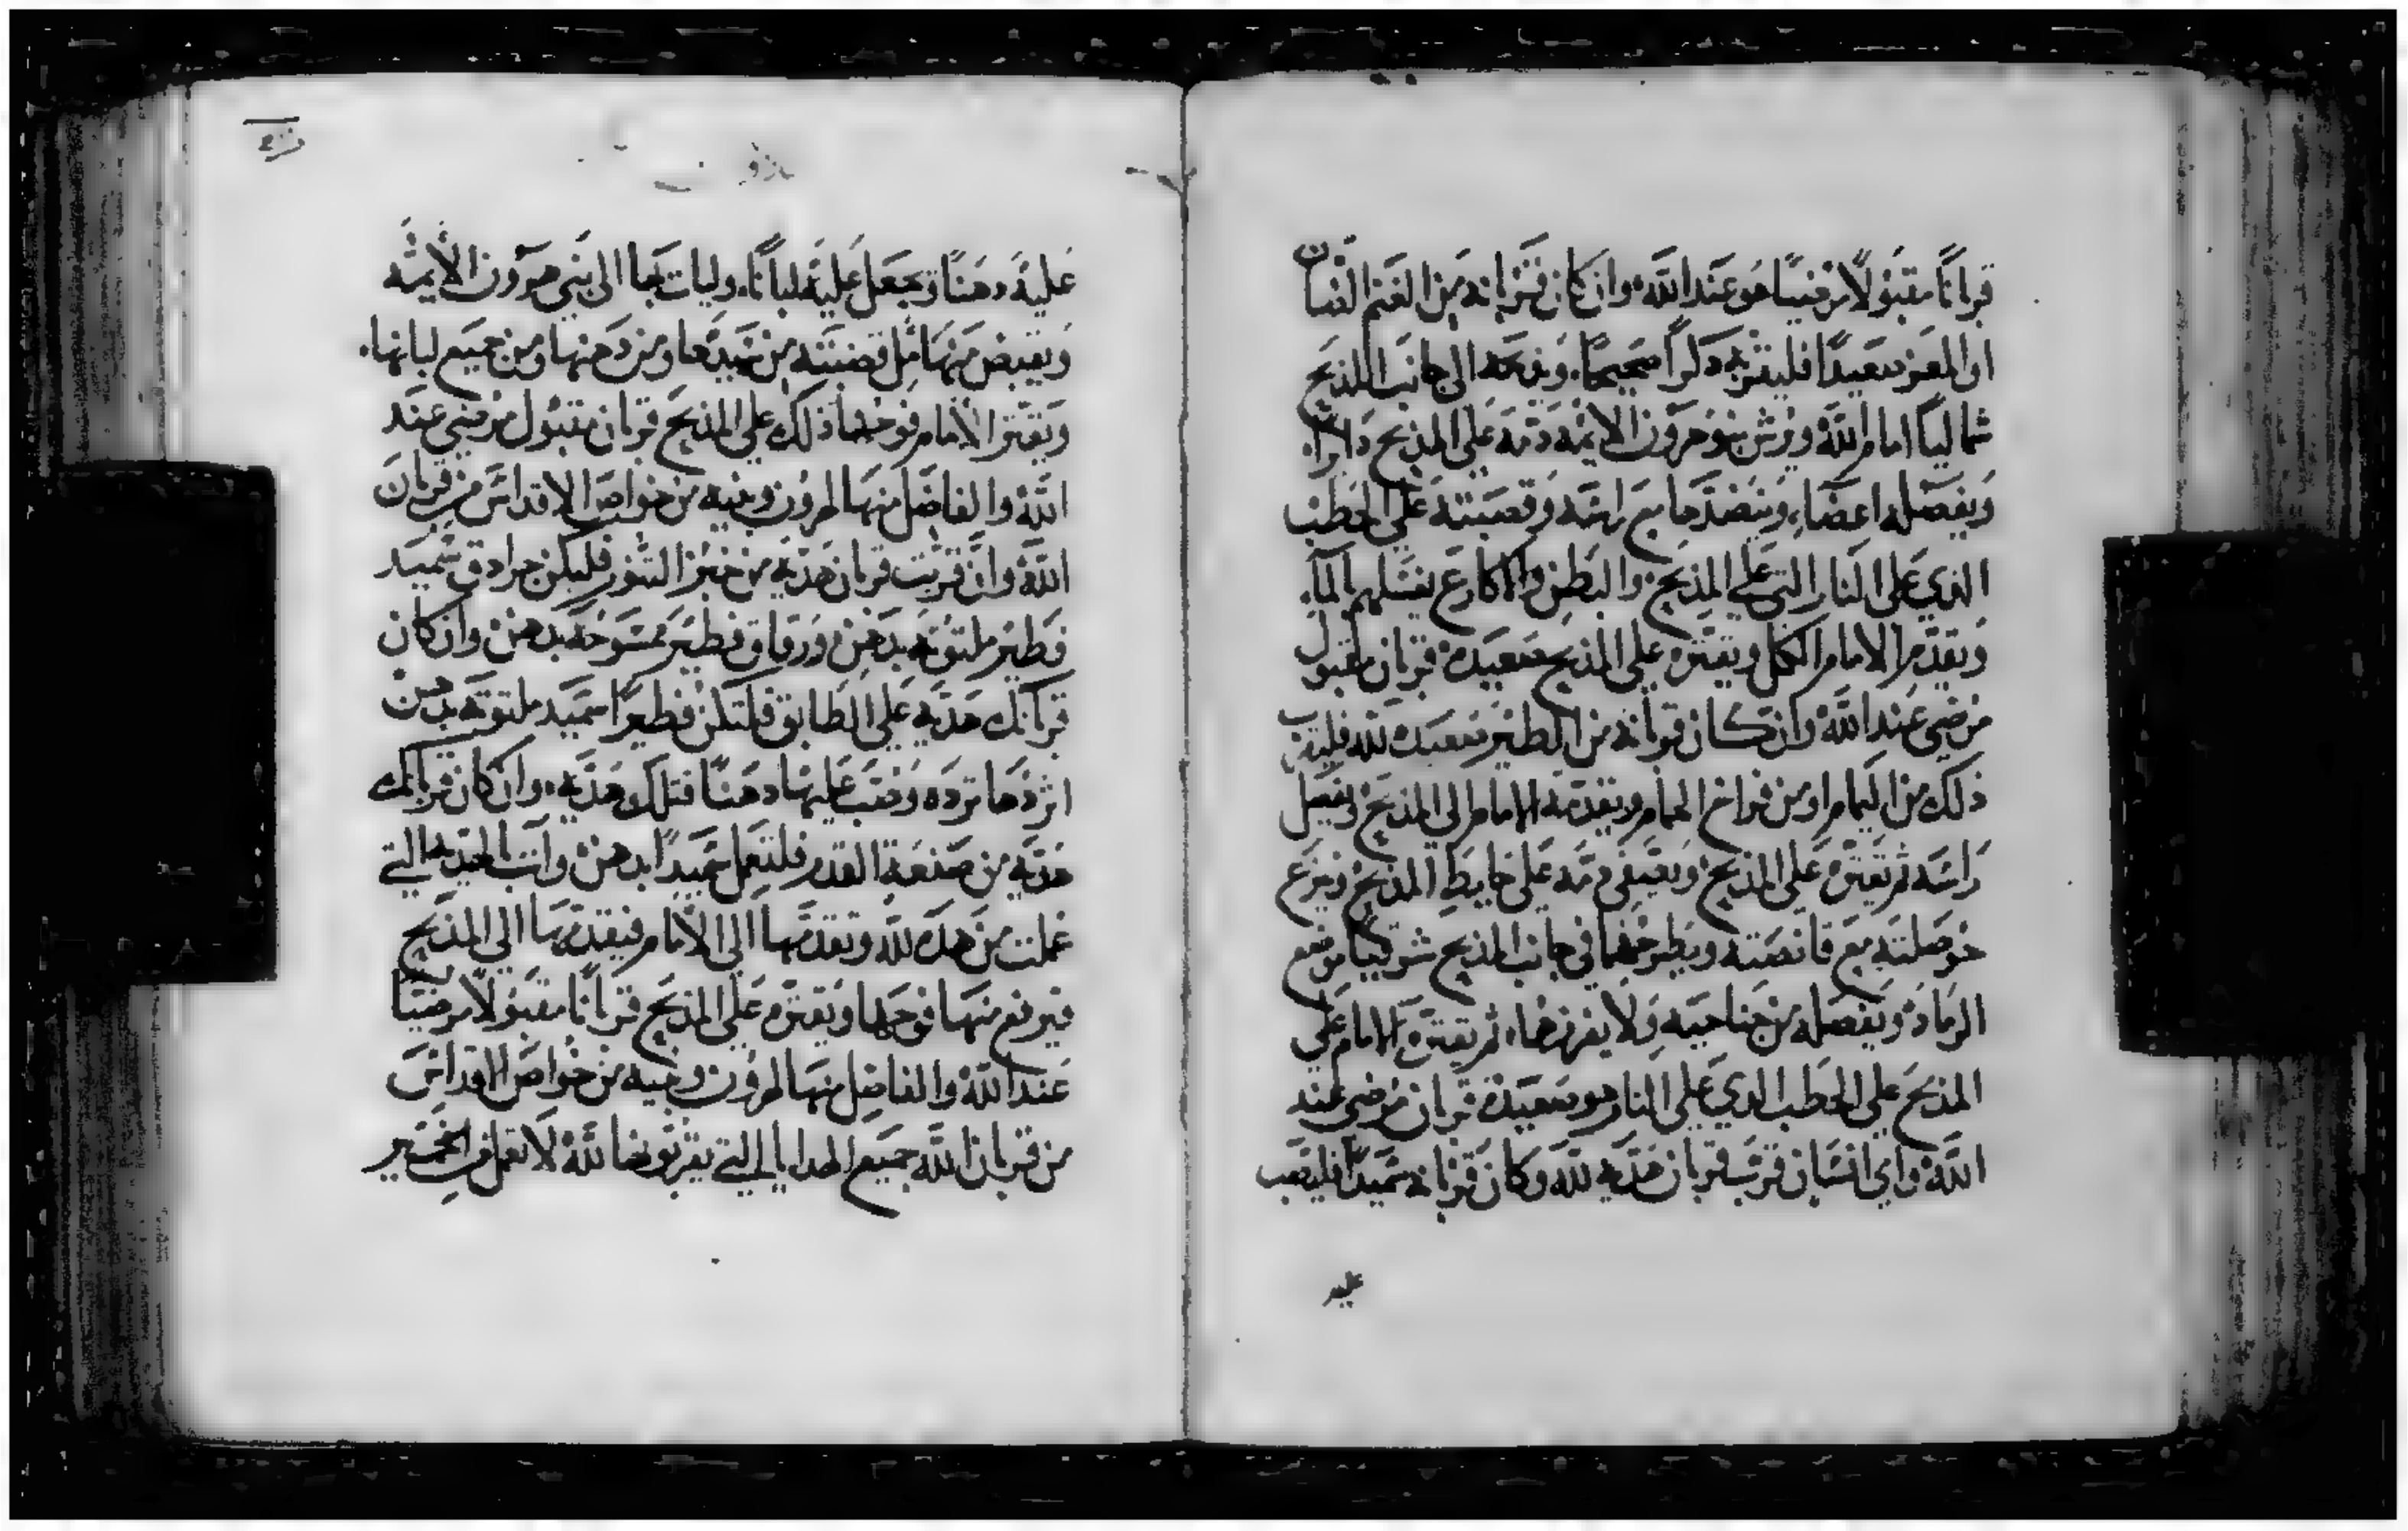 قربانًا مقبولًا مرضيًا هو عند الله وان كان قربانه من الغنم الضان
او المعز صعيدًا فليقربه ذكرًا صحيحًا. ويذبحه الى جانب المذبح
شماليًا امام الله ويرش بنو هرون الايمه دمه على المذبح دايرًا.
ويفصله اعضاء وينضدها مع راسه وقصبته على الحطب
الذي على النار التي على المذبح والبطن والاكارع يغسلهم بالماء.
ويقدم الامام الكل ويقتره على المذبح صعيدة قربان مقبول
مرضي عند الله وان كان قربانه من الطير صعيدة لله فليقرب
ذلك من اليمام او من فراخ الحمام ويقدمه الامام الى المذبح ويفصل
راسه ثم يقتره على المذبح ويصفى دمه على حايط المذبح وينزع
حوصلته مع قانصته ويطرحهما في جانب المذبح شرقيًا موضع
الرماد ويفصله من جناحيه ولا يفرزها. ثم يقتره الامام على
المذبح على الحطب الدي على النار هو صعيدة قربان مرضي عند
الله واي انسان قرب قربان هديه لله وكان قربانه سميدًا فليصب
عليه
عليه دهنًا ويجعل عليه لبانًا. وليات بها الى بني هرون الايمه
ويقبض منها مل قبضته من سميدها ومن دهنها ومن جميع لبانها.
ويقتر الامام فوحها ذلك على المذبح قربان مقبول مرضي عند
الله والفاضل منها لهرون وبنيه من خواص الاقداس من قربان
الله وان قربت قربان هديه من خبز التنور فليكن جرادق سميد
فطير ملتوته بدهن ورقاق فطير ممسوحه بدهن وان كان
قربانك هديه على الطابق فلتكن فطيرًا سميد ملتوته بدهن
اثردها ترده وصب عليها دهنًا فتلك هديه. وان كان قربانك
هديه من صنعة القدر فلتعمل سميدًا بدهن وات بالهديه التي
عملت من هذه لله وتقدمها الى الامام فيقدمها الى المذبح
فيرفع منها فوحها ويقتره على المذبح قربانًا مقبولًا مرضيًا
عند الله والفاضل منها لهرون وبنيه من خواص الاقداس
من قربان الله جميع الهدايا التي تقربونها لله لا تعمل خمير